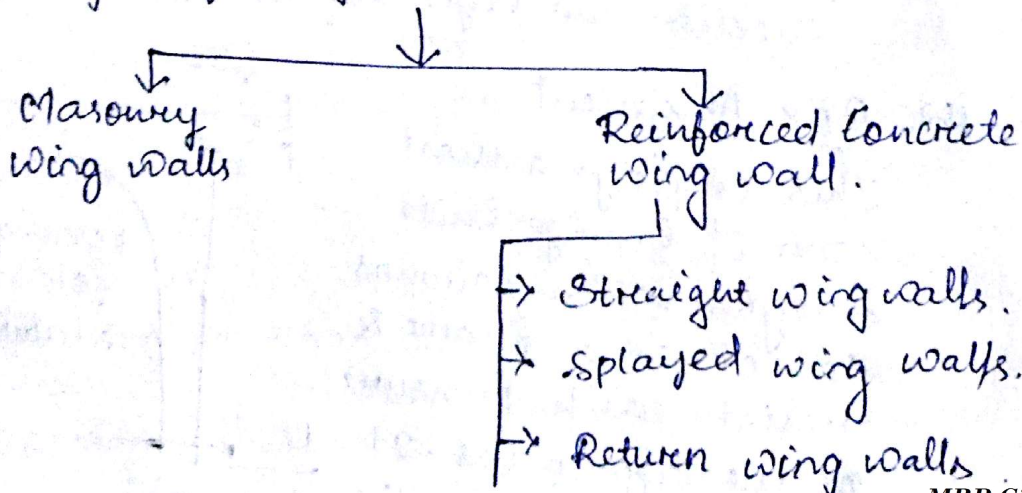 Masonry
wing walls
Reinforced Concrete
wing wall.
Straight wing walls.
Splayed wing walls.
Return wing walls